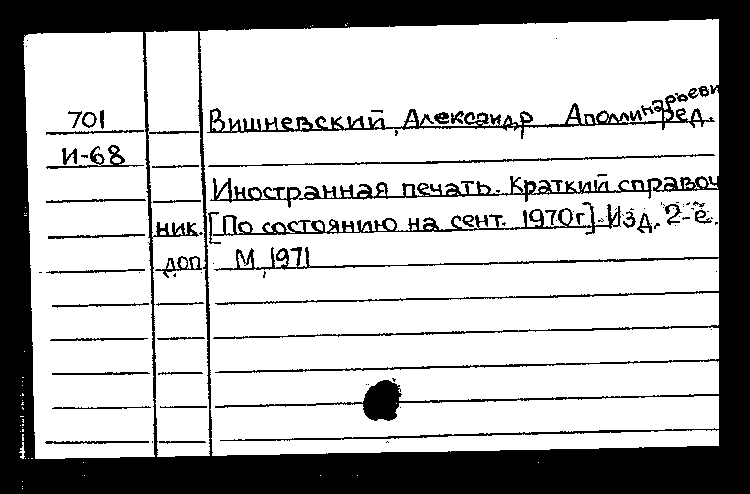 701 Вишневский, Александр Аполлинарьеви
ред.
И-68
Иностранная печать. Краткий справоч
ник. [По состоянию на сент. 1970г]. Изд. 2-е.
доп М., 1971